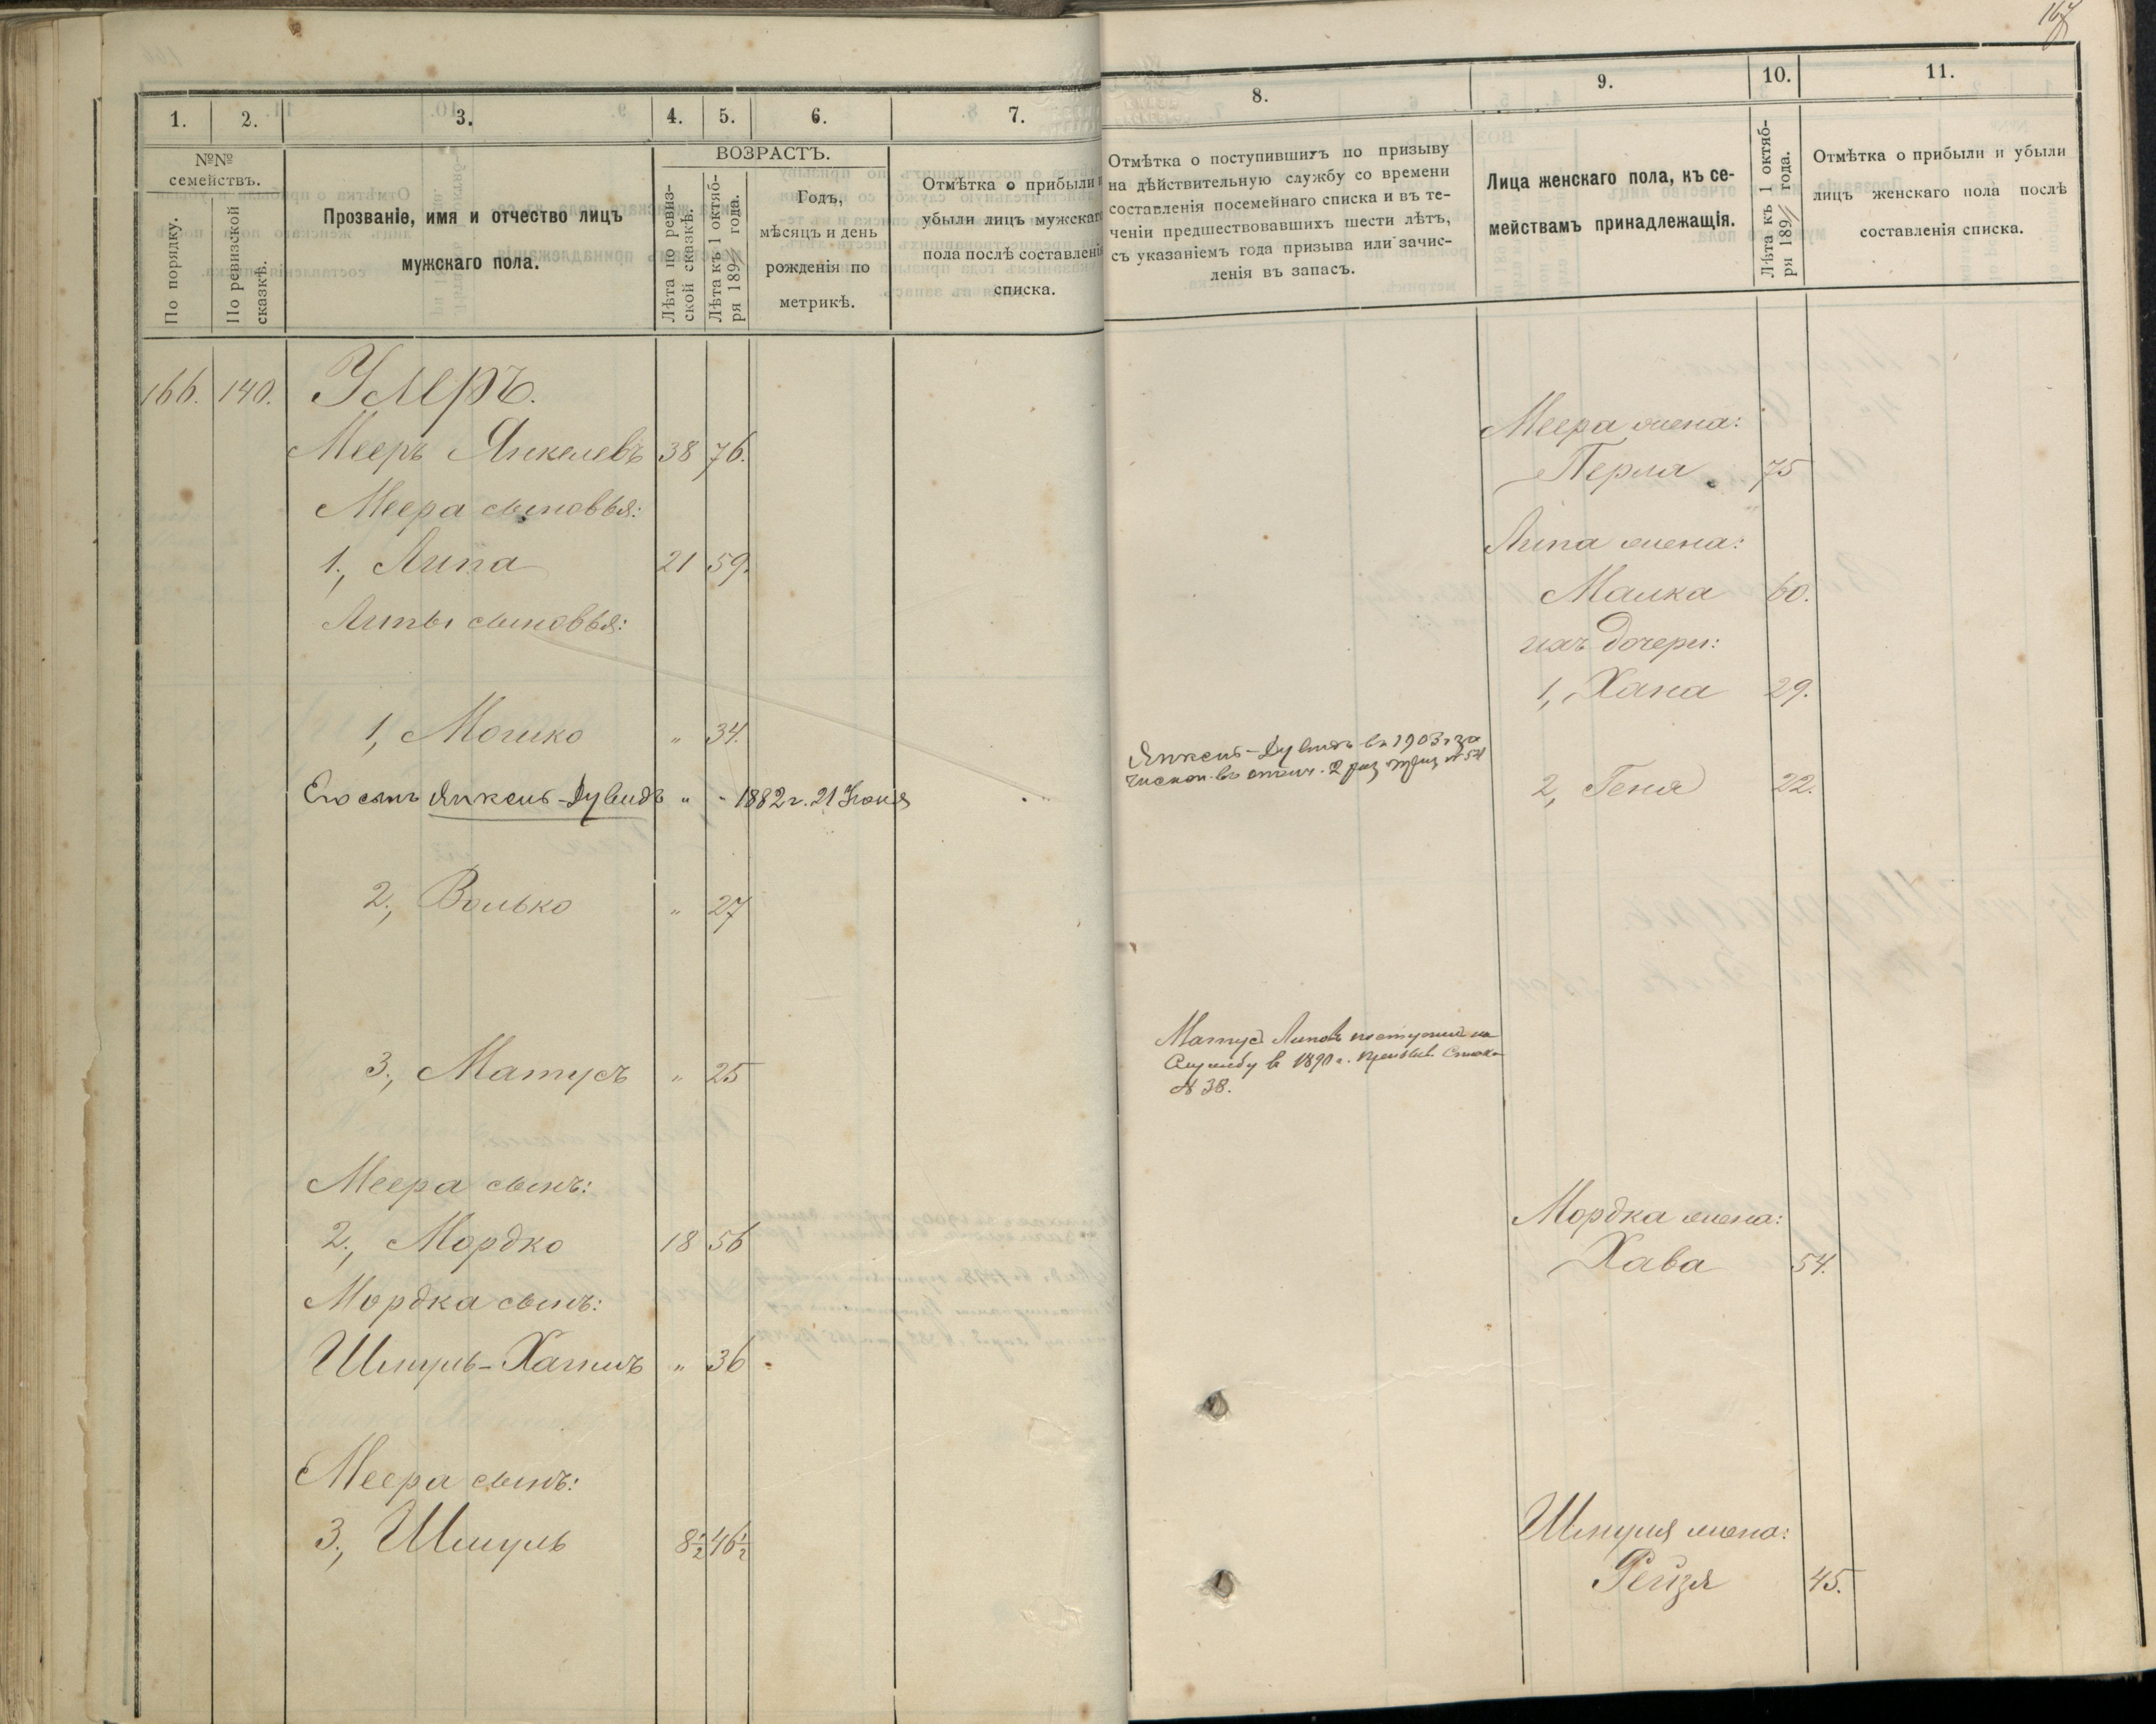 167
1.
2.
3.
4.
5.
6.
7.
№№
семействъ.
По порядку.
По ревизской
сказкѣ.
Прозваніе, имя и отчество лицъ
мужскаго пола.
ВОЗРАСТЪ.
Лѣта по ревиз-
ской сказкѣ.
Лѣта къ 1 октяб-
ря 189 года.
Годъ,
мѣсяцъ и день
рожденія по
метрикѣ.
Отмѣтка о прибыли и
убыли лицъ мужскаго
пола послѣ составленія
списка.
166. 140. Улеръ.
Мееръ Янкелевъ 38 76.
Меера сыновья:
1., Липа 21 59.
Липы сыновья:
1, Мошко „ 34.
Его сынъ Янкель-Дувидъ „ - 1882 г. 21 Іюня
2., Волько „ 27
3., Матусъ „ 25
Меера сынъ:
2., Мордко 18 56
Мордка сынъ:
Шмуль-Хаимъ „ 36
Меера сынъ:
3., Шмуль 8½ 46½
8.
9.
10.
11.
Отмѣтка о поступившихъ по призыву
на дѣйствительную службу со времени
составленія посемейнаго списка и въ те-
ченіи предшествовавшихъ шести лѣтъ,
съ указаніемъ года призыва или зачис-
ленія въ запасъ.
Лица женскаго пола, къ се-
мействамъ принадлежащія.
Лѣта къ 1 октяб-
ря 189 года.
Отмѣтка о прибыли и убыли
лицъ женскаго пола послѣ
составленія списка.
Меера жена:
Перла 75
Липа жена:
Малка 60.
ихъ дочери:
1, Хана 29.
Янкель-Дувидъ въ 1903 г за
числен. въ ополч. 2 раз №54
2, Геня 22.
Матусъ Липовъ поступилъ на
Службу въ 1890 г.
№ 38.
Мордка жена:
Хава 54.
Шмуля жена:
Рейзя 45.